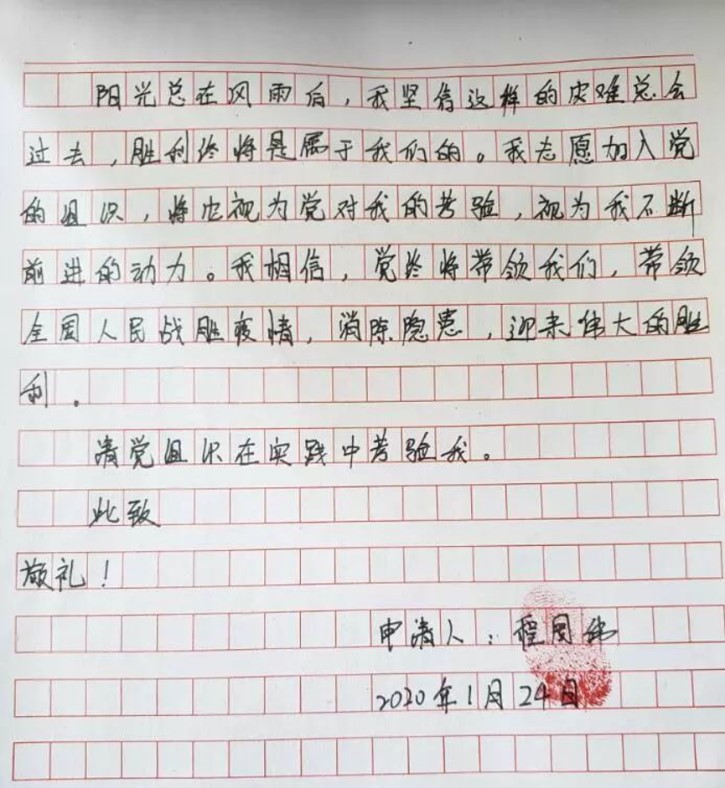 阳光总在风雨后，我坚信这样的灾难总会
过去，胜利终将是属于我们的。我志愿加入党
的组织，将它视为党对我的考验，视为我不断
前进的动力。我相信，党终将带领我们，带领
全国人民战胜疫情，消除隐患，迎来伟大的胜
利。
请党组织在实践中考验我。
此致
敬礼！
申请人：程国纬
2020年1月24日